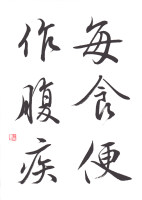 每食便
作腹疾